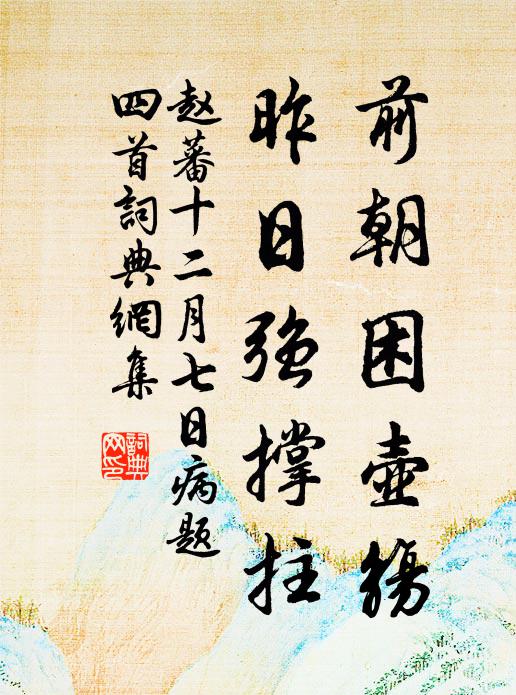 前朝困壺觴
昨日強撐拄
赵蕃十二月七日病题
四首詞典網集
詞典网印